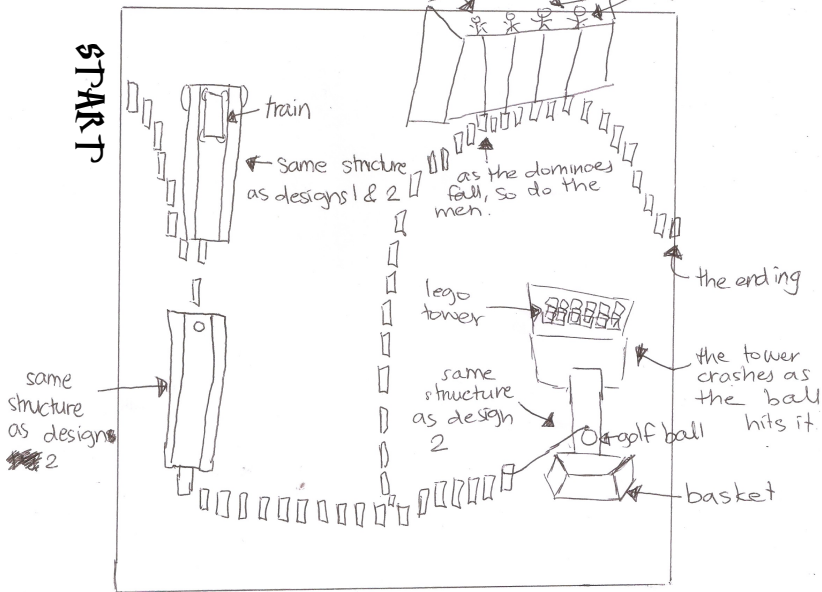 START
train
same structure
as designs 1 & 2
as the dominoes
fall, so do the
men.
the ending
lego
tower
the tower
crashes as
the ball
hits it
same
structure
as design
2
same
structure
as design
2
golf ball
basket